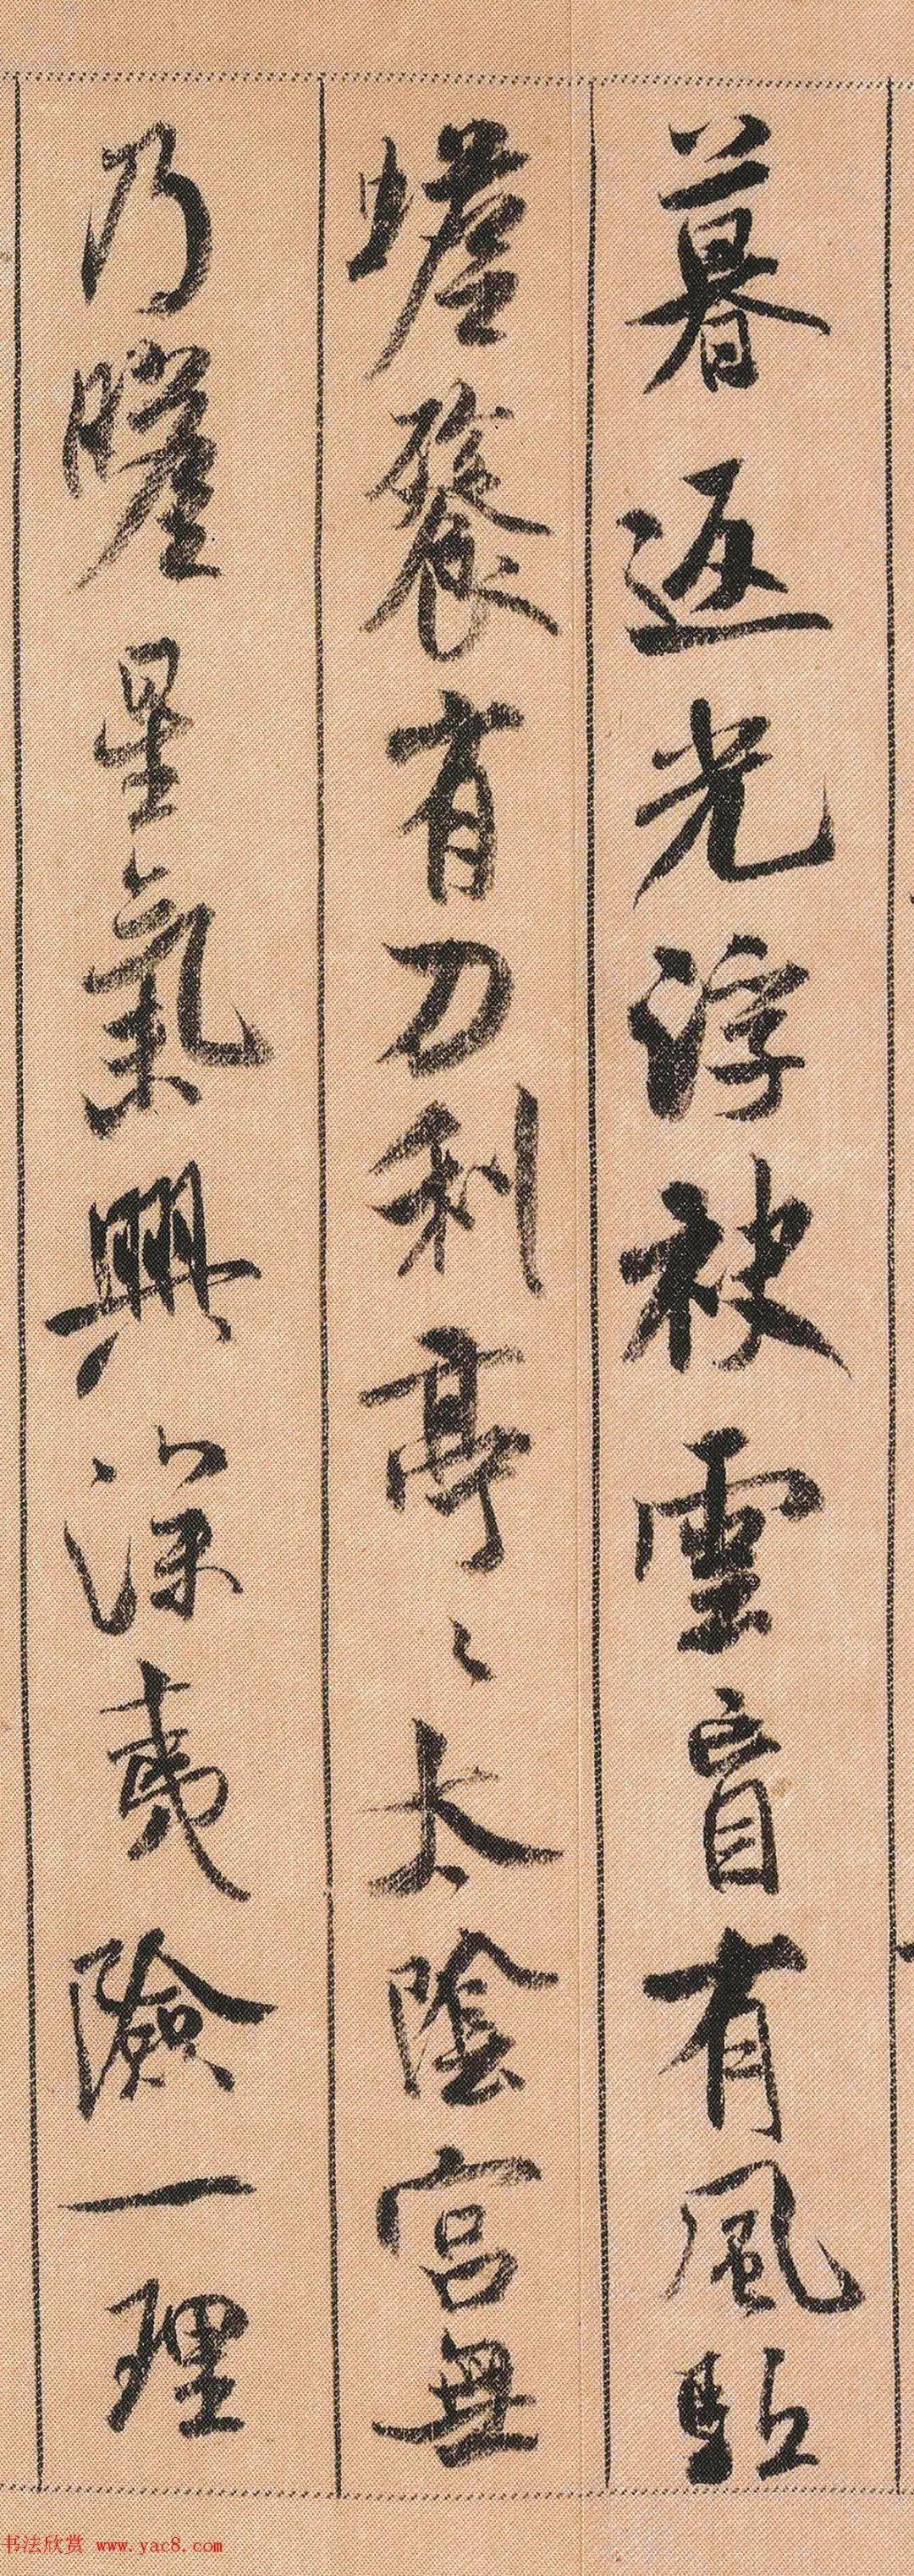 暮返光浮袂雲盲有風駈
蟾餮有刀利亭〻太陰宮無
乃瞻星氣興深夷險一理
书法欣赏 www.yac8.com